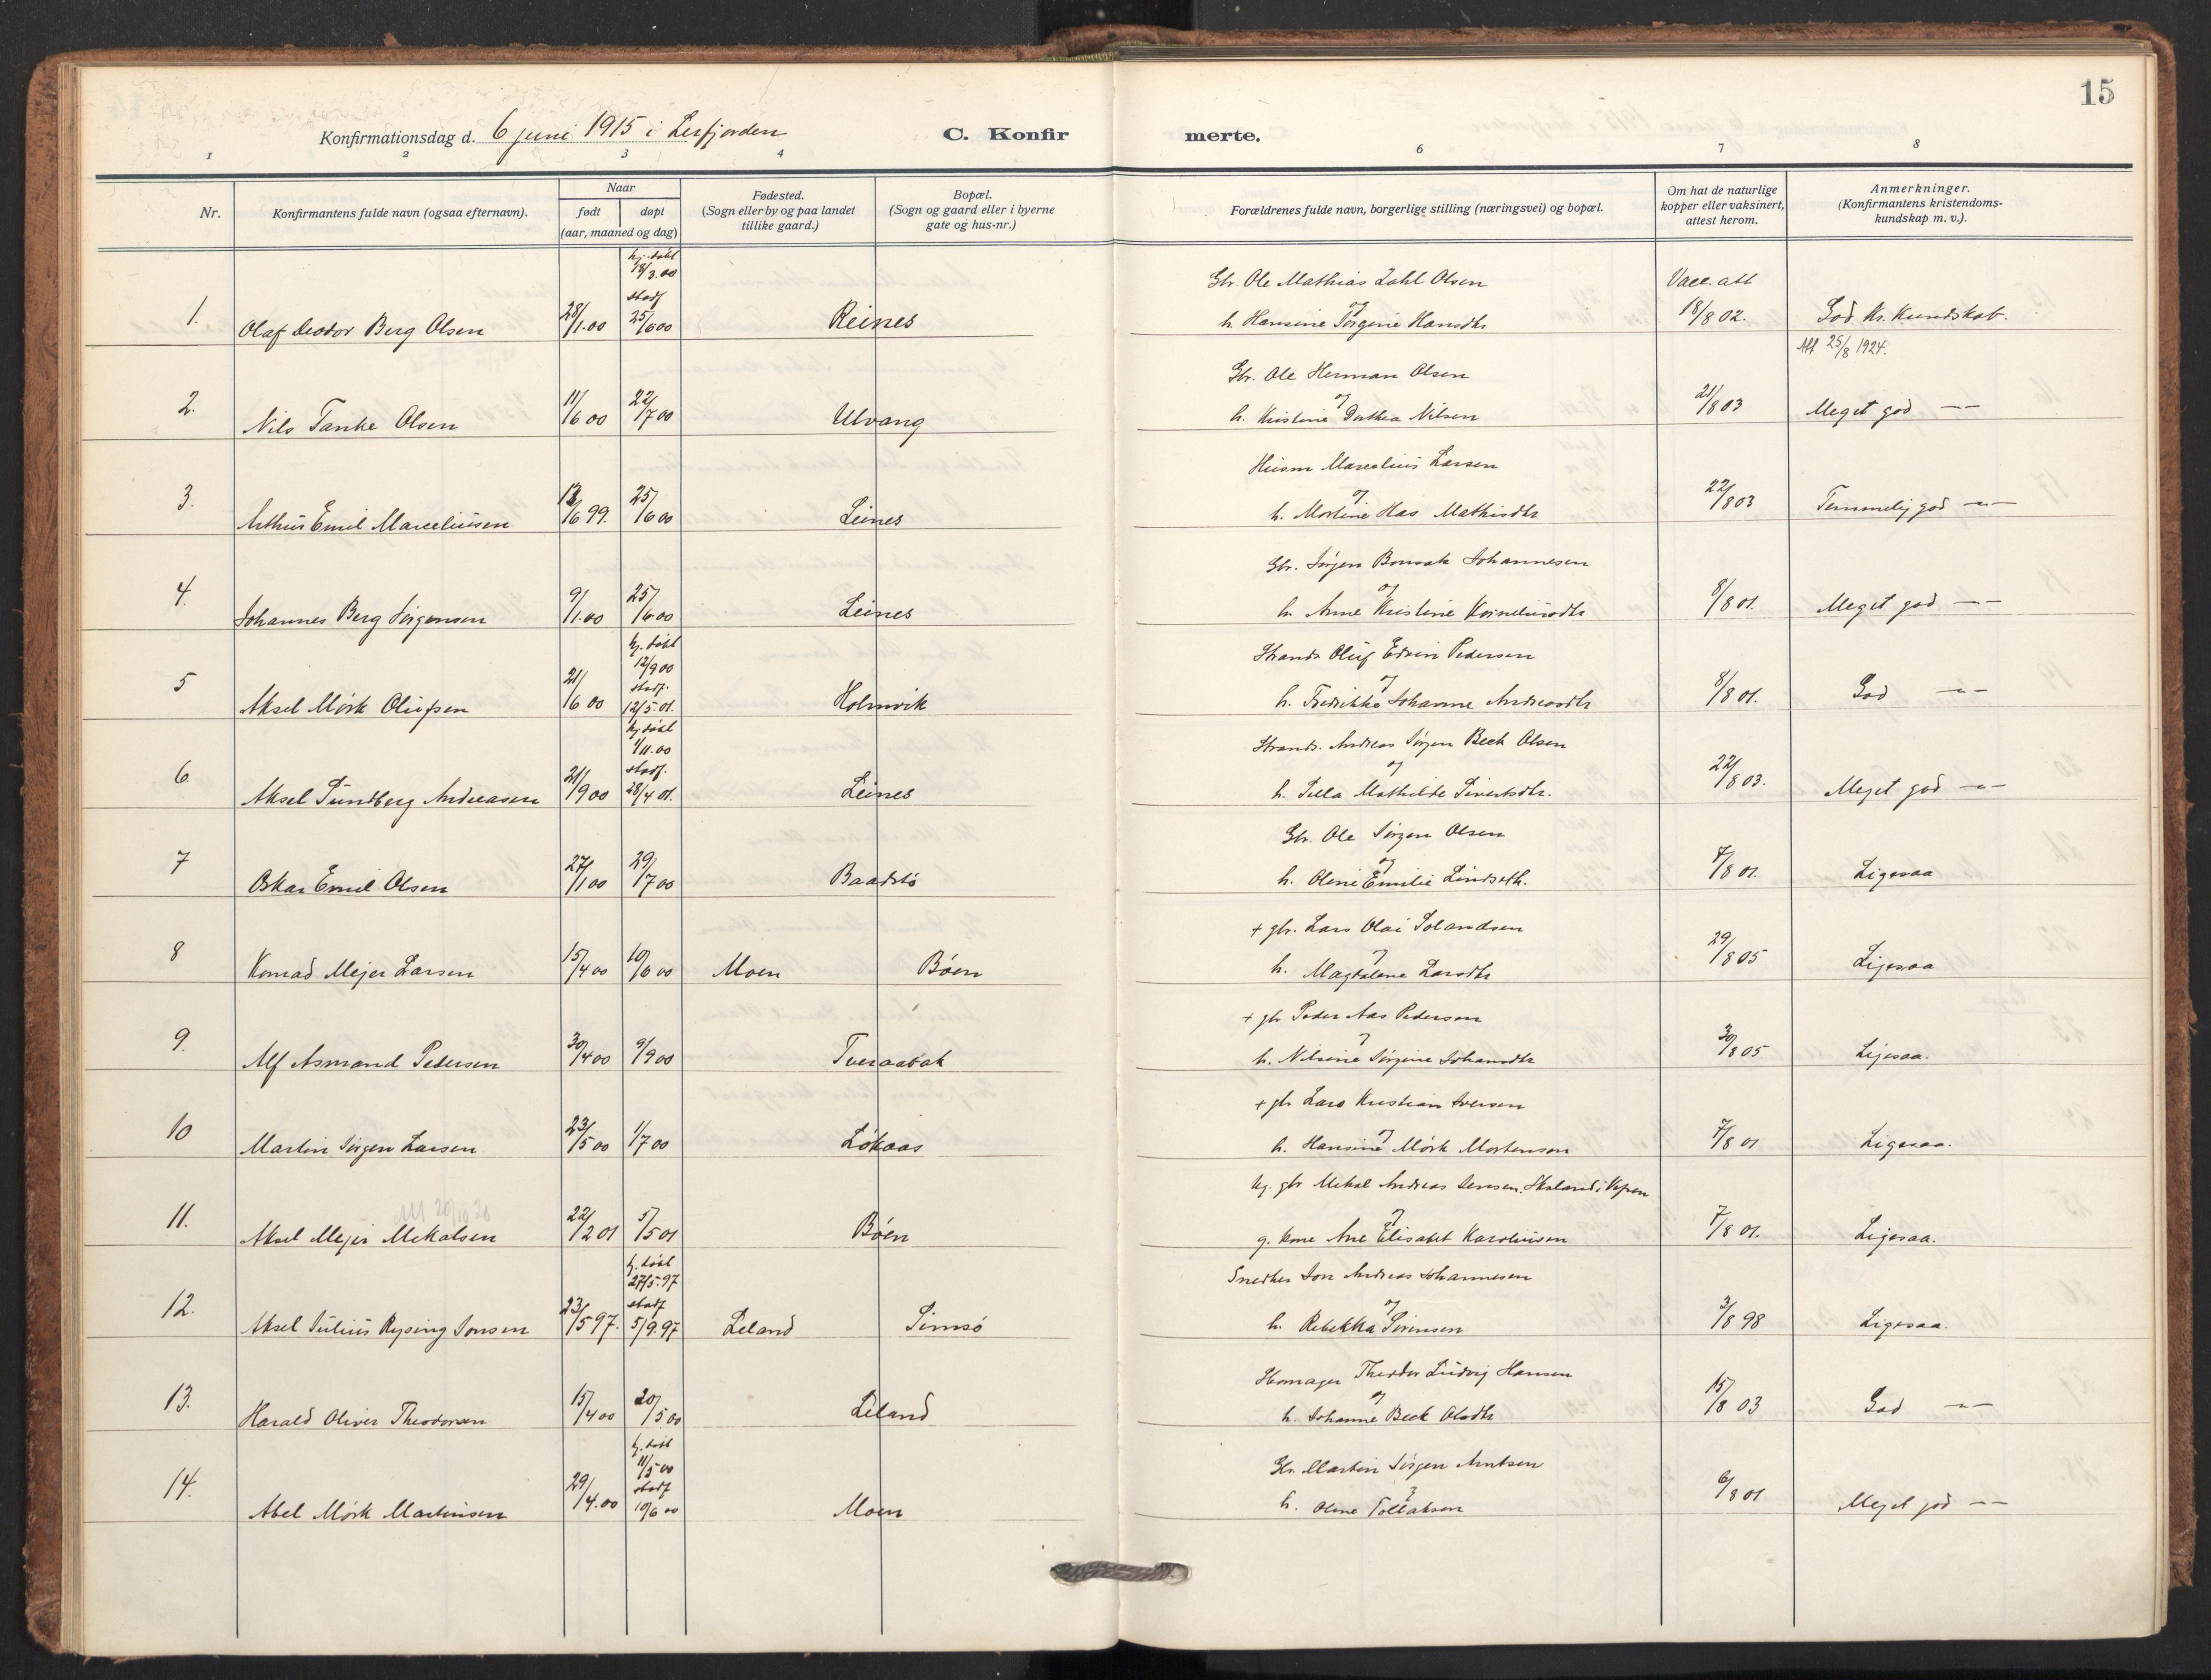 15
Konfirmationsdag d. 6 juni 1915 i Leirfjorden
C. Konfir merte.
1 2 3 4 6 7 8
Nr.
Konfirmantens fulde navn (ogsaa efternavn).
Naar
født døpt
(aar, maaned og dag)
Fødested.
(Sogn eller by og paa landet
tillike gaard.)
Bopæl.
(Sogn og gaard eller i byerne
gate og hus-nr.)
Forældrenes fulde navn, borgerlige stilling (næringsvei) og bopæl.
Om hat de naturlige
kopper eller vaksinert,
attest herom.
Anmerkninger.
(Konfirmantens kristendoms-
kundskap m. v.).
hj. døbt
18/3.00
stadf
Gbr. Ole Mathias Zahl Olsen
Vacc. att
1. Olaf Deodor Berg Olsen 28/1.00 25/6 00 Reines
og
h. Hansine Jørgine Hansdtr 18/8 02. God Kr. Kundskab.
Att 25/8 1924.
Gbr. Ole Herman Olsen
og
2. Nils Tanke Olsen 11/6 00 22/7 00 Ulvang h. Kristine Dorthea Nilsen 21/8 03 Meget god -"-
Husm Marcelius Larsen
og
3. Arthur Emil Marceliussen 13/6 99. 25/6 00 Leines h. Mortine Has Mathisdtr 22/8 03 Temmelig god -"-
Gbr. Jørgen Bonsak Johannesen
og
4. Johannes Berg Jørgensen 9/1.00 25/6 00 Leines h. Anne Kristine Korneliusdtr 8/8 01. Meget god -"-
hj. døbt
12/9 00
stadf.
Strands. Oluf Edvin Pedersen
og
5 Aksel Mørk Olufsen 21/6 00 12/5.01. Holmvik h. Fredrikke Johanne Andreasdtr 8/8 01. God -"-
hj døbt
1/11.00
stadf.
Strands. Andreas Jørgen Beck Olsen
og
6. Aksel Sundberg Andreasen 21/9 00 28/4 01. Leines h. Pella Mathilde Sivertsdtr. 22/8 03. Meget god -"-
Gbr. Ole Jørgen Olsen
og
7 Oskar Emil Olsen 27/1 00 29/7 00 Baadstø h. Oline Emilie Lindseth. 7/8 01. Ligesaa
+ gbr. Lars Olai Tolandsen
og
8 Konrad Mejer Larsen 15/4 00 10/6 00 Moen Bøen h. Magdalena Larsdtr 29/8 05 Ligesaa
+ gbr Peder Aas Pedersen
og
9. Alf Asmand Pedersen 30/4 00 9/9 00 Tveraabak h. Nilsine Jørgine Johansdtr 30/8 05 Ligesaa.
+ gbr Lars Kristian Iversen
og
10 Martin Jørgen Larsen 23/5 00 1/7 00 Løkaas h. Hansine Mørk Mortensen 7/8 01 Ligesaa.
Ug. gbr Mekal Andreas Jensen, Skaland i Vefsen
og
11. Aksel Mejer Mekalsen 22/2 01 5/5 01 Bøen g. kone Ane Elisabet Karoliusen 7/8 01. Ligesaa.
hj. døbt
27/5.97
stadf
Snedker Jon Andreas Johannesen
og
12. Aksel Julius Rysing Jonsen 23/5 97. 5/9.97 Leland Simsø h. Rebekka Sørensen 3/8 98 Ligesaa.
Skomager Theodor Ludvig Hansen
og
13. Harald Oliver Theodorsen 15/4 00 20/5 00 Leland h. Johanne Beck Olsdtr 15/8 03 God -"-
hj. døbt
11/5 00
stadf
Gbr. Martin Jørgen Arntsen
og
14. Abel Mørk Martinsen 29/4.00 10/6 00 Moen h. Oline Tollaksen 6/8 01 Meget god -"-